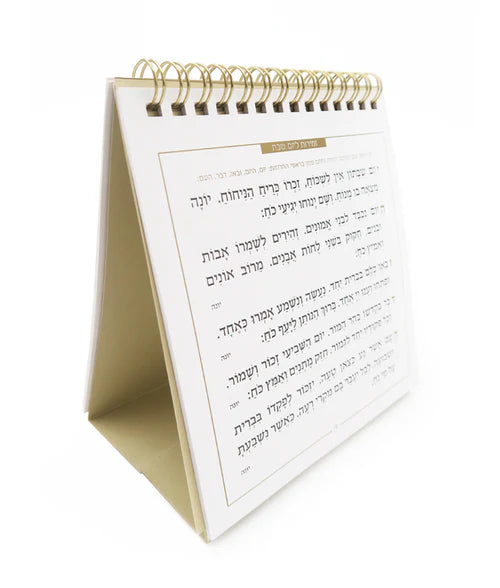 זמירות ליום שבת
יום שבתון אין לשכוח, זכרו כריח הניחוח. יונה
מצאה בו מנוח. ושם ינוחו יגיעי כח:
היום נכבד לבני אמונים. זהירים לשמרו אבות
ובנים. חקוק בשני לחות אבנים. מרוב אונים
ואמיץ כח:
יונה
ובאו כלם בברית יחד. נעשה ונשמע אמרו כאחד.
ופתחו וענו יי אחד. ברוך הנותן ליעף כח:
יונה
דבר בקדשו בהר המור. יום השביעי זכור ושמור.
וכל פקודיו יחד לגמור. חזק מתנים ואמץ כח:
יונה
העם אשר נע כצאן תעה. יזכור לפקדו בברית
ושבועה. לבל יעבר בם מקרי רעה. כאשר נשבעת
על מי נח:
יונה